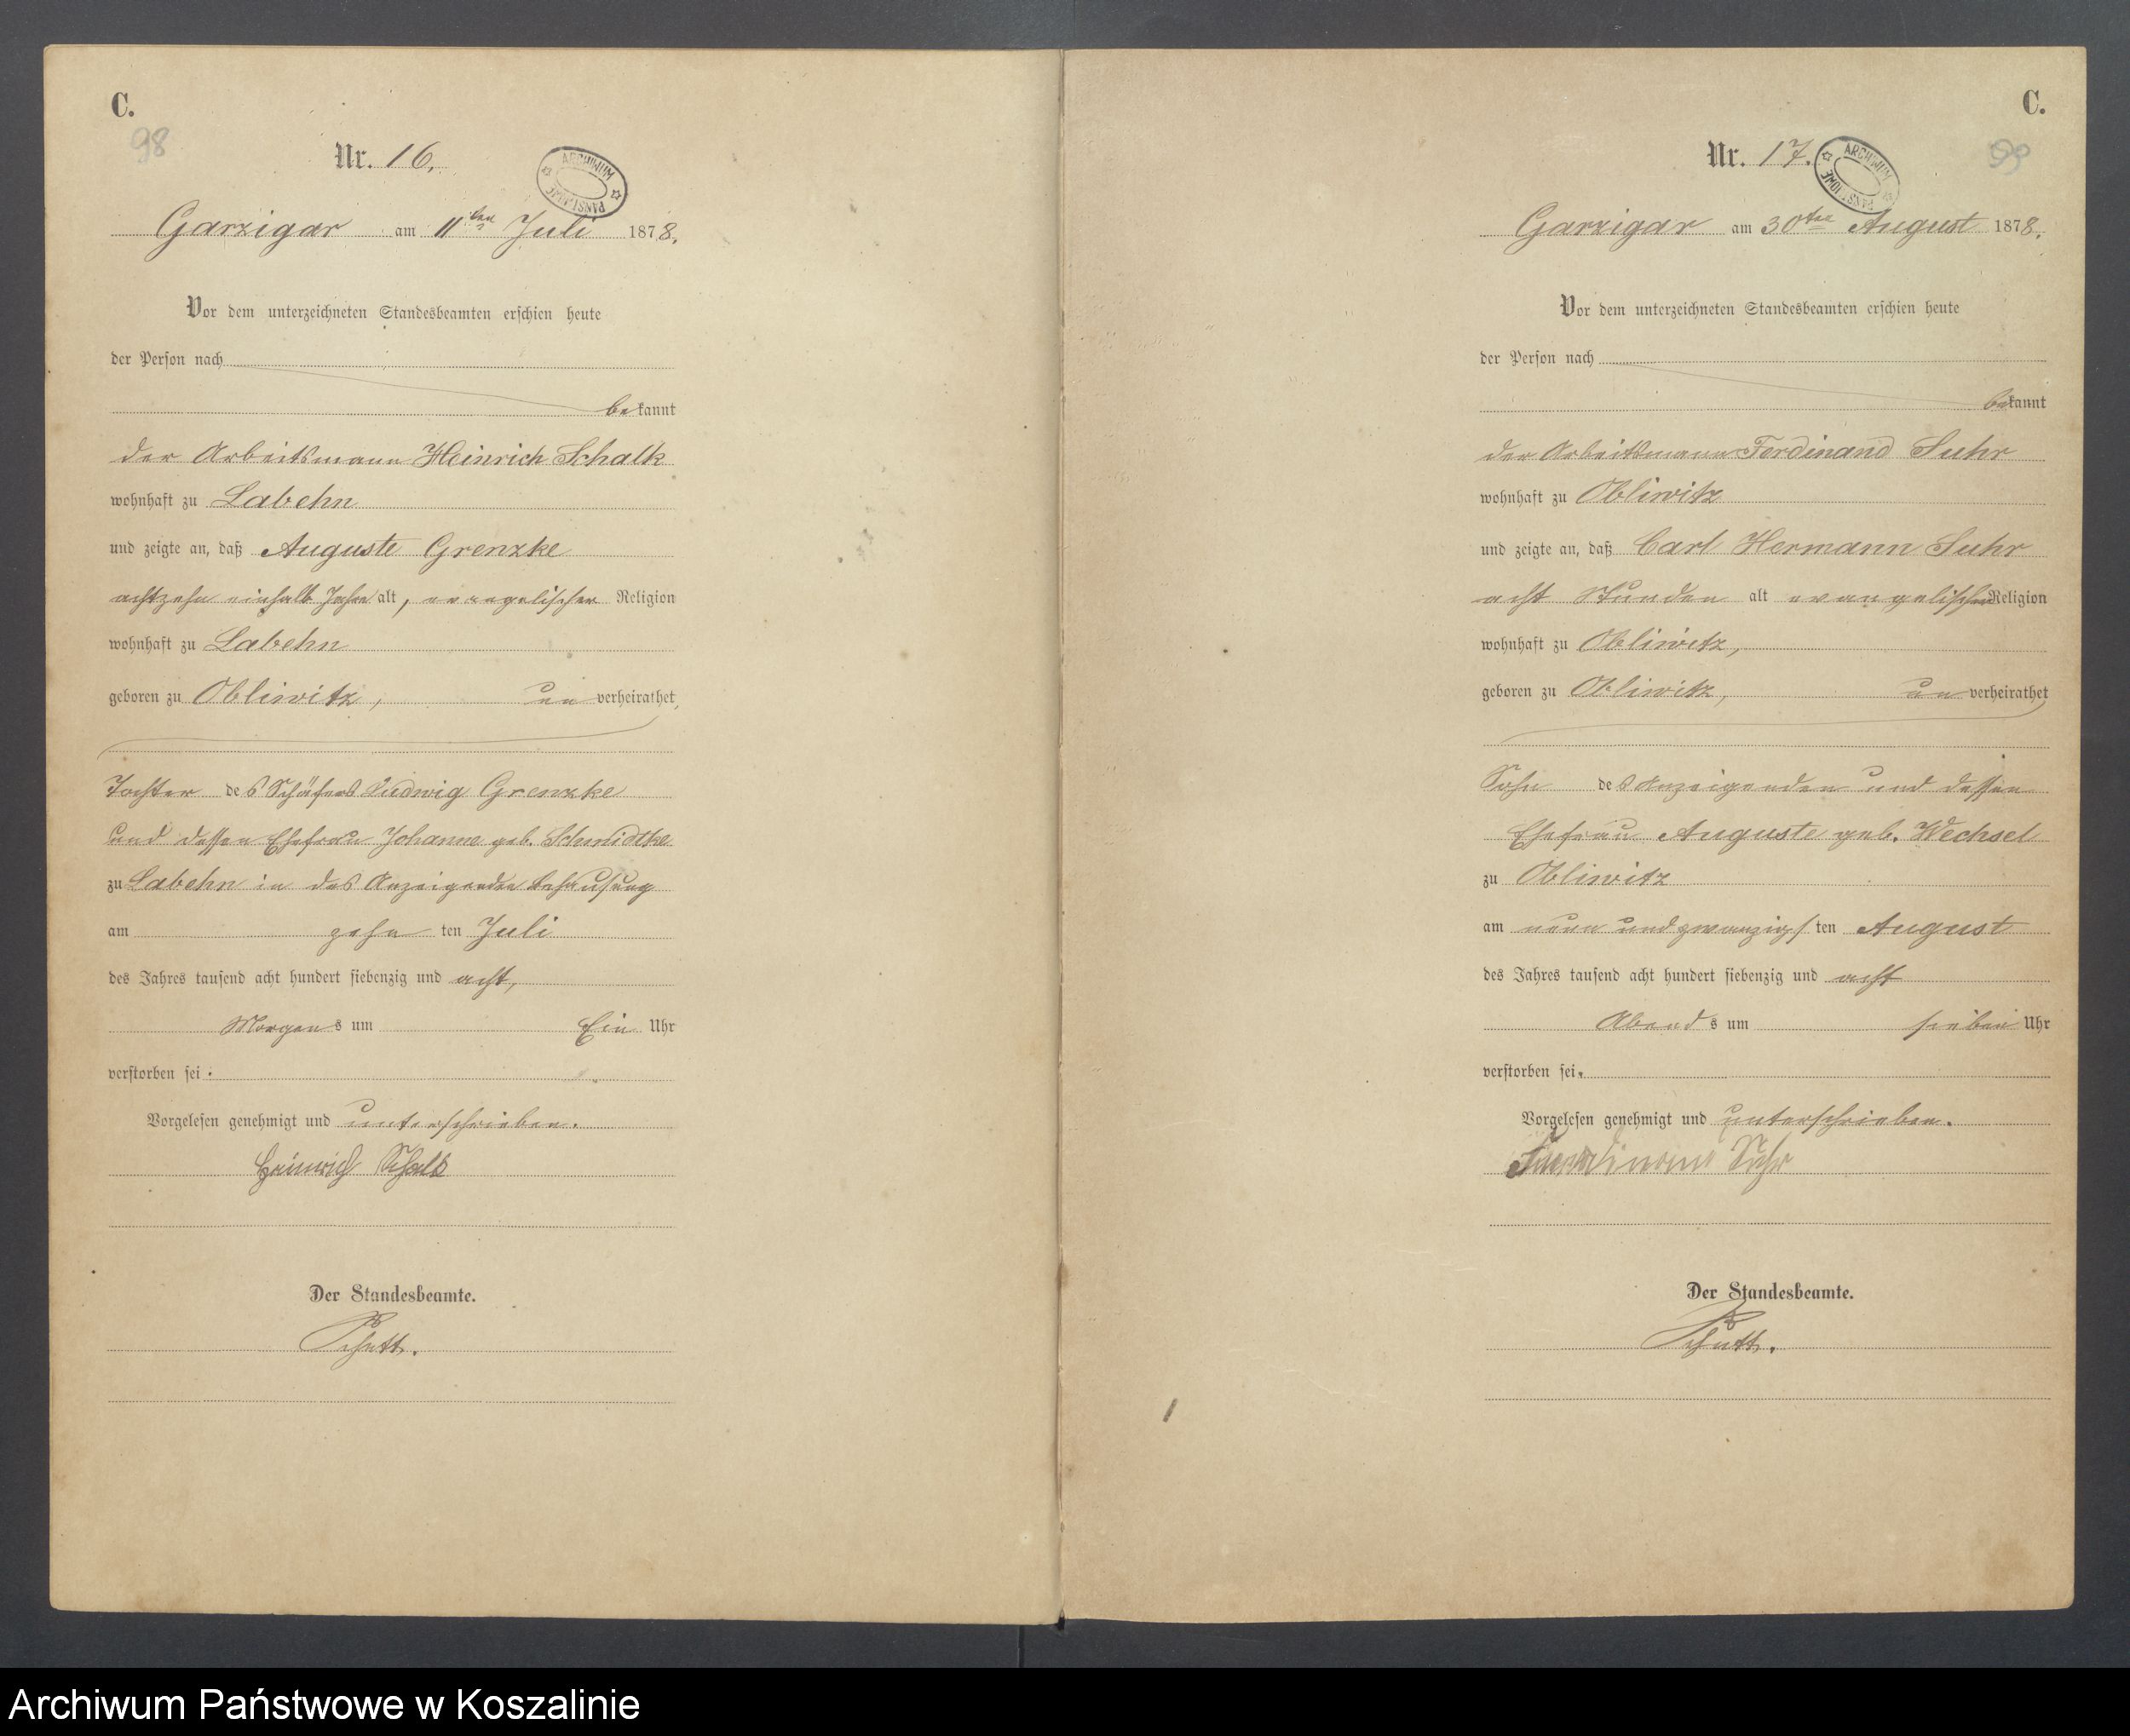 C.
98
Nr. 16.
ARCHIWUM PAŃSTWOWE
Garzigar am 11ten Juli 1878.
Vor dem unterzeichneten Standesbeamten erschien heute
der Person nach
bekannt
der Arbeitsmann Heinrich Schalk
wohnhaft zu Labehn
und zeigte an, daß Auguste Grenzke
achtzehn einhalb Jahre alt, evangelischer Religion
wohnhaft zu Labehn
geboren zu Obliwitz, unverheirathet,
Tochter des Schäfers Ludwig Grenzke
und dessen Ehefrau Johanne geb. Schmidtke
zu Labehn in des Anzeigenden Behausung
am zehn ten Juli
des Jahres tausend acht hundert siebenzig und acht,
Morgens um Ein Uhr
verstorben sei.
Vorgelesen genehmigt und unterschrieben.
Heinrich Schalk
Der Standesbeamte.
C.
99
Nr. 17.
ARCHIWUM PAŃSTWOWE
Garzigar am 30ten August 1878.
Vor dem unterzeichneten Standesbeamten erschien heute
der Person nach
bekannt
der Arbeitsmann Ferdinand Suhr
wohnhaft zu Obliwitz
und zeigte an, daß Carl Hermann Suhr
acht Stunden alt evangelischer Religion
wohnhaft zu Obliwitz,
geboren zu Obliwitz, unverheirathet
Sohn des Anzeigenden und dessen
Ehefrau Auguste geb. Wechsel
zu Obliwitz
am neun und zwanzigsten August
des Jahres tausend acht hundert siebenzig und acht
Abends um sieben Uhr
verstorben sei.
Vorgelesen genehmigt und unterschrieben.
Ferdinand Suhr
Der Standesbeamte.
Archiwum Państwowe w Koszalinie